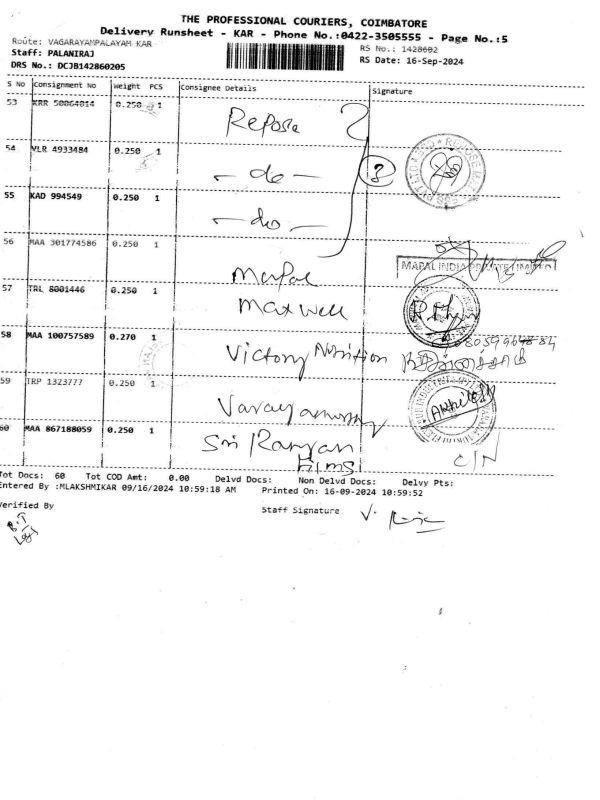 THE PROFESSIONAL COURIERS, COIMBATORE
Delivery Runsheet - KAR - Phone No.:0422-3505555 - Page No.:5
Route: VAGARAYAMPALAYAM KAR
RS No.: 1428602
Staff: PALANIRAJ
RS Date: 16-Sep-2024
DRS No.: DCJB142860205
S No Consignment No Weight PCS Consignee Details Signature
53 KRR 50064014 0.250 1 Repose
54 VLR 4933484 0.250 1 - do -
3
55 KAD 994549 0.250 1 - do -
56 MAA 301774586 0.250 1 Mapal
MAPAL INDIA PRIVATE LIMITED
57 TRL 8001446 0.250 1 Maxwell
58 MAA 100757589 0.270 1 Victory Nutrition
59 TRP 1323777 0.250 1
60 MAA 867188059 0.250 1 Sri Ranyan
Films
C/N
Tot Docs: 60 Tot COD Amt: 0.00 Delvd Docs: Non Delvd Docs: Delvy Pts:
Entered By :MLAKSHMIKAR 09/16/2024 10:59:18 AM Printed On: 16-09-2024 10:59:52
Verified By
Staff Signature